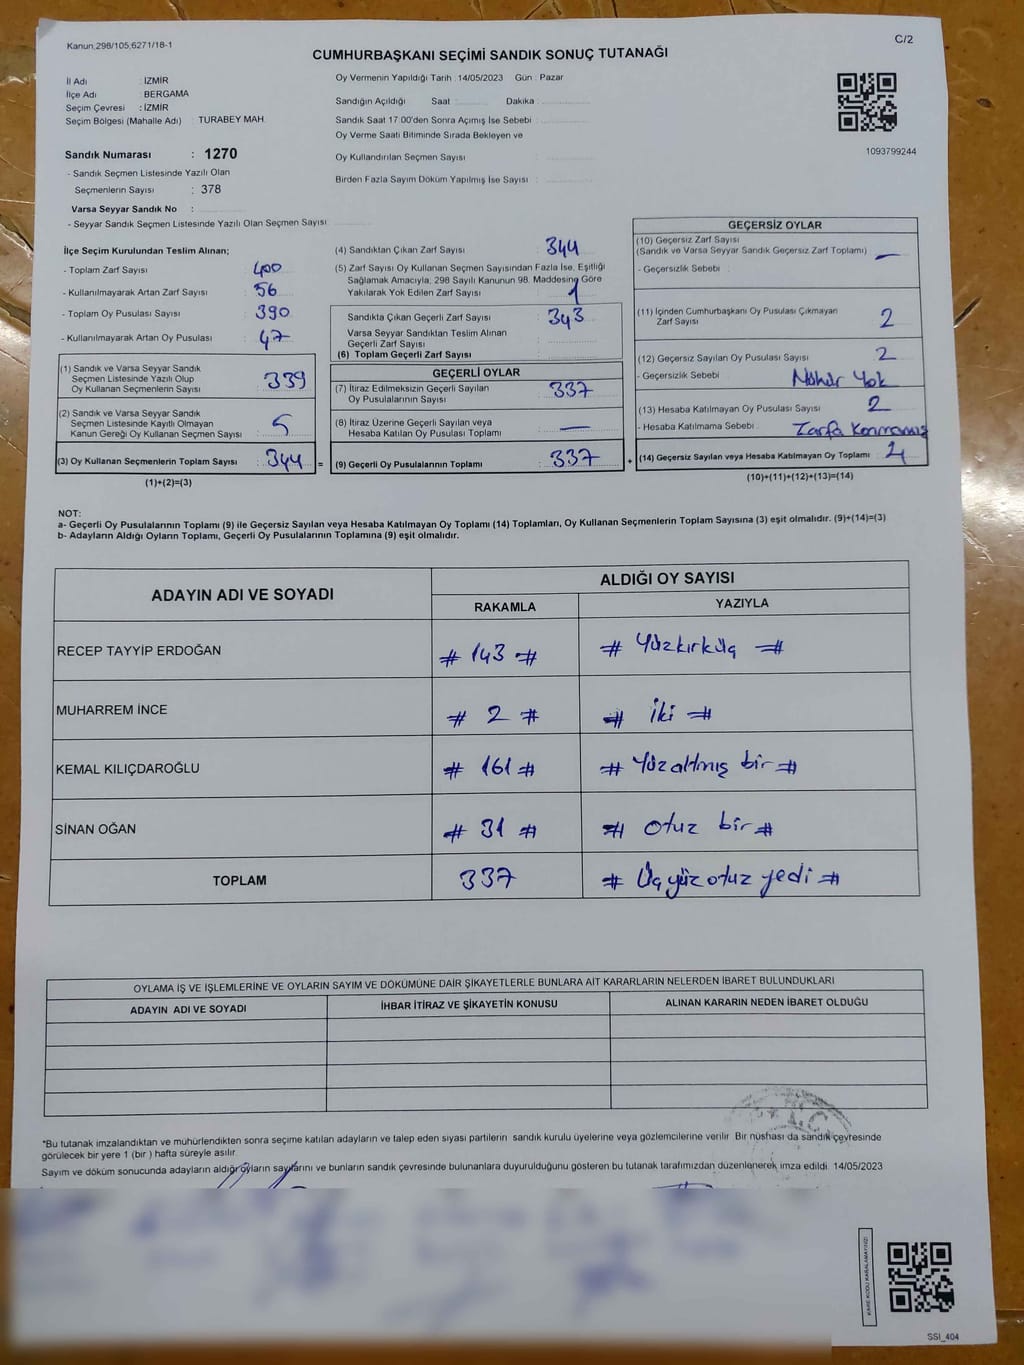 Kanun,298/105;6271/18-1
C/2
CUMHURBAŞKANI SEÇİMİ SANDIK SONUÇ TUTANAĞI
İl Adı : İZMİR
İlçe Adı : BERGAMA
Seçim Çevresi : İZMİR
Seçim Bölgesi (Mahalle Adı) : TURABEY MAH.
Sandık Numarası : 1270
- Sandık Seçmen Listesinde Yazılı Olan
Seçmenlerin Sayısı : 378
Varsa Seyyar Sandık No :
- Seyyar Sandık Seçmen Listesinde Yazılı Olan Seçmen Sayısı
Oy Vermenin Yapıldığı Tarih : 14/05/2023 Gün : Pazar
Sandığın Açıldığı Saat : Dakika :
Sandık Saat 17:00'den Sonra Açımış İse Sebebi :
Oy Verme Saati Bitiminde Sırada Bekleyen ve
Oy Kullandırılan Seçmen Sayısı :
Birden Fazla Sayım Döküm Yapılmış İse Sayısı :
1093799244
İlçe Seçim Kurulundan Teslim Alınan;
- Toplam Zarf Sayısı : 400
- Kullanılmayarak Artan Zarf Sayısı : 56
- Toplam Oy Pusulası Sayısı : 390
- Kullanılmayarak Artan Oy Pusulası : 47
(1) Sandık ve Varsa Seyyar Sandık
Seçmen Listesinde Yazılı Olup
Oy Kullanan Seçmenlerin Sayısı : 339
(2) Sandık ve Varsa Seyyar Sandık
Seçmen Listesinde Kayıtlı Olmayan
Kanun Gereği Oy Kullanan Seçmen Sayısı : 5
(3) Oy Kullanan Seçmenlerin Toplam Sayısı : 344 =
(1)+(2)=(3)
(4) Sandıktan Çıkan Zarf Sayısı : 344
(5) Zarf Sayısı Oy Kullanan Seçmen Sayısından Fazla İse, Eşitliği
Sağlamak Amacıyla; 298 Sayılı Kanunun 98. Maddesine Göre
Yakılarak Yok Edilen Zarf Sayısı : 1
Sandıkta Çıkan Geçerli Zarf Sayısı : 343
Varsa Seyyar Sandıktan Teslim Alınan
Geçerli Zarf Sayısı :
(6) Toplam Geçerli Zarf Sayısı :
GEÇERLİ OYLAR
(7) İtiraz Edilmeksizin Geçerli Sayılan
Oy Pusulalarının Sayısı : 337
(8) İtiraz Üzerine Geçerli Sayılan veya
Hesaba Katılan Oy Pusulası Toplamı : —
(9) Geçerli Oy Pusulalarının Toplamı : 337 +
GEÇERSİZ OYLAR
(10) Geçersiz Zarf Sayısı
(Sandık ve Varsa Seyyar Sandık Geçersiz Zarf Toplamı) : —
- Geçersizlik Sebebi :
(11) İçinden Cumhurbaşkanı Oy Pusulası Çıkmayan
Zarf Sayısı 2
(12) Geçersiz Sayılan Oy Pusulası Sayısı : 2
- Geçersizlik Sebebi : Mühür Yok
(13) Hesaba Katılmayan Oy Pusulası Sayısı : 2
- Hesaba Katılmama Sebebi : Zarfa Konmamış
(14) Geçersiz Sayılan veya Hesaba Katılmayan Oy Toplamı :
(10)+(11)+(12)+(13)=(14)
NOT:
a- Geçerli Oy Pusulalarının Toplamı (9) ile Geçersiz Sayılan veya Hesaba Katılmayan Oy Toplamı (14) Toplamları, Oy Kullanan Seçmenlerin Toplam Sayısına (3) eşit olmalıdır. (9)+(14)=(3)
b- Adayların Aldığı Oyların Toplamı, Geçerli Oy Pusulalarının Toplamına (9) eşit olmalıdır.
ADAYIN ADI VE SOYADI
ALDIĞI OY SAYISI
RAKAMLA YAZIYLA
RECEP TAYYİP ERDOĞAN # 143 # # Yüzkırküç #
MUHARREM İNCE # 2 # # İki #
KEMAL KILIÇDAROĞLU # 161 # # Yüzaltmış bir #
SİNAN OĞAN # 31 # # Otuz bir #
TOPLAM 337 # Üçyüzotuz yedi #
OYLAMA İŞ VE İŞLEMLERİNE VE OYLARIN SAYIM VE DÖKÜMÜNE DAİR ŞİKAYETLERLE BUNLARA AİT KARARLARIN NELERDEN İBARET BULUNDUKLARI
ADAYIN ADI VE SOYADI İHBAR İTİRAZ VE ŞİKAYETİN KONUSU ALINAN KARARIN NEDEN İBARET OLDUĞU
T.C.
*Bu tutanak imzalandıktan ve mühürlendikten sonra seçime katılan adayların ve talep eden siyasi partilerin sandık kurulu üyelerine veya gözlemcilerine verilir. Bir nüshası da sandık çevresinde
görülecek bir yere 1 (bir ) hafta süreyle asılır.
Sayım ve döküm sonucunda adayların aldığı oyların sayılarını ve bunların sandık çevresinde bulunanlara duyurulduğunu gösteren bu tutanak tarafımızdan düzenlenerek imza edildi. 14/05/2023
KARE KODU KARALAMAYINIZ!
SSI_404